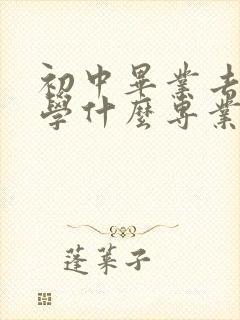 初中畢業去
學什麼專業
蓬萊子